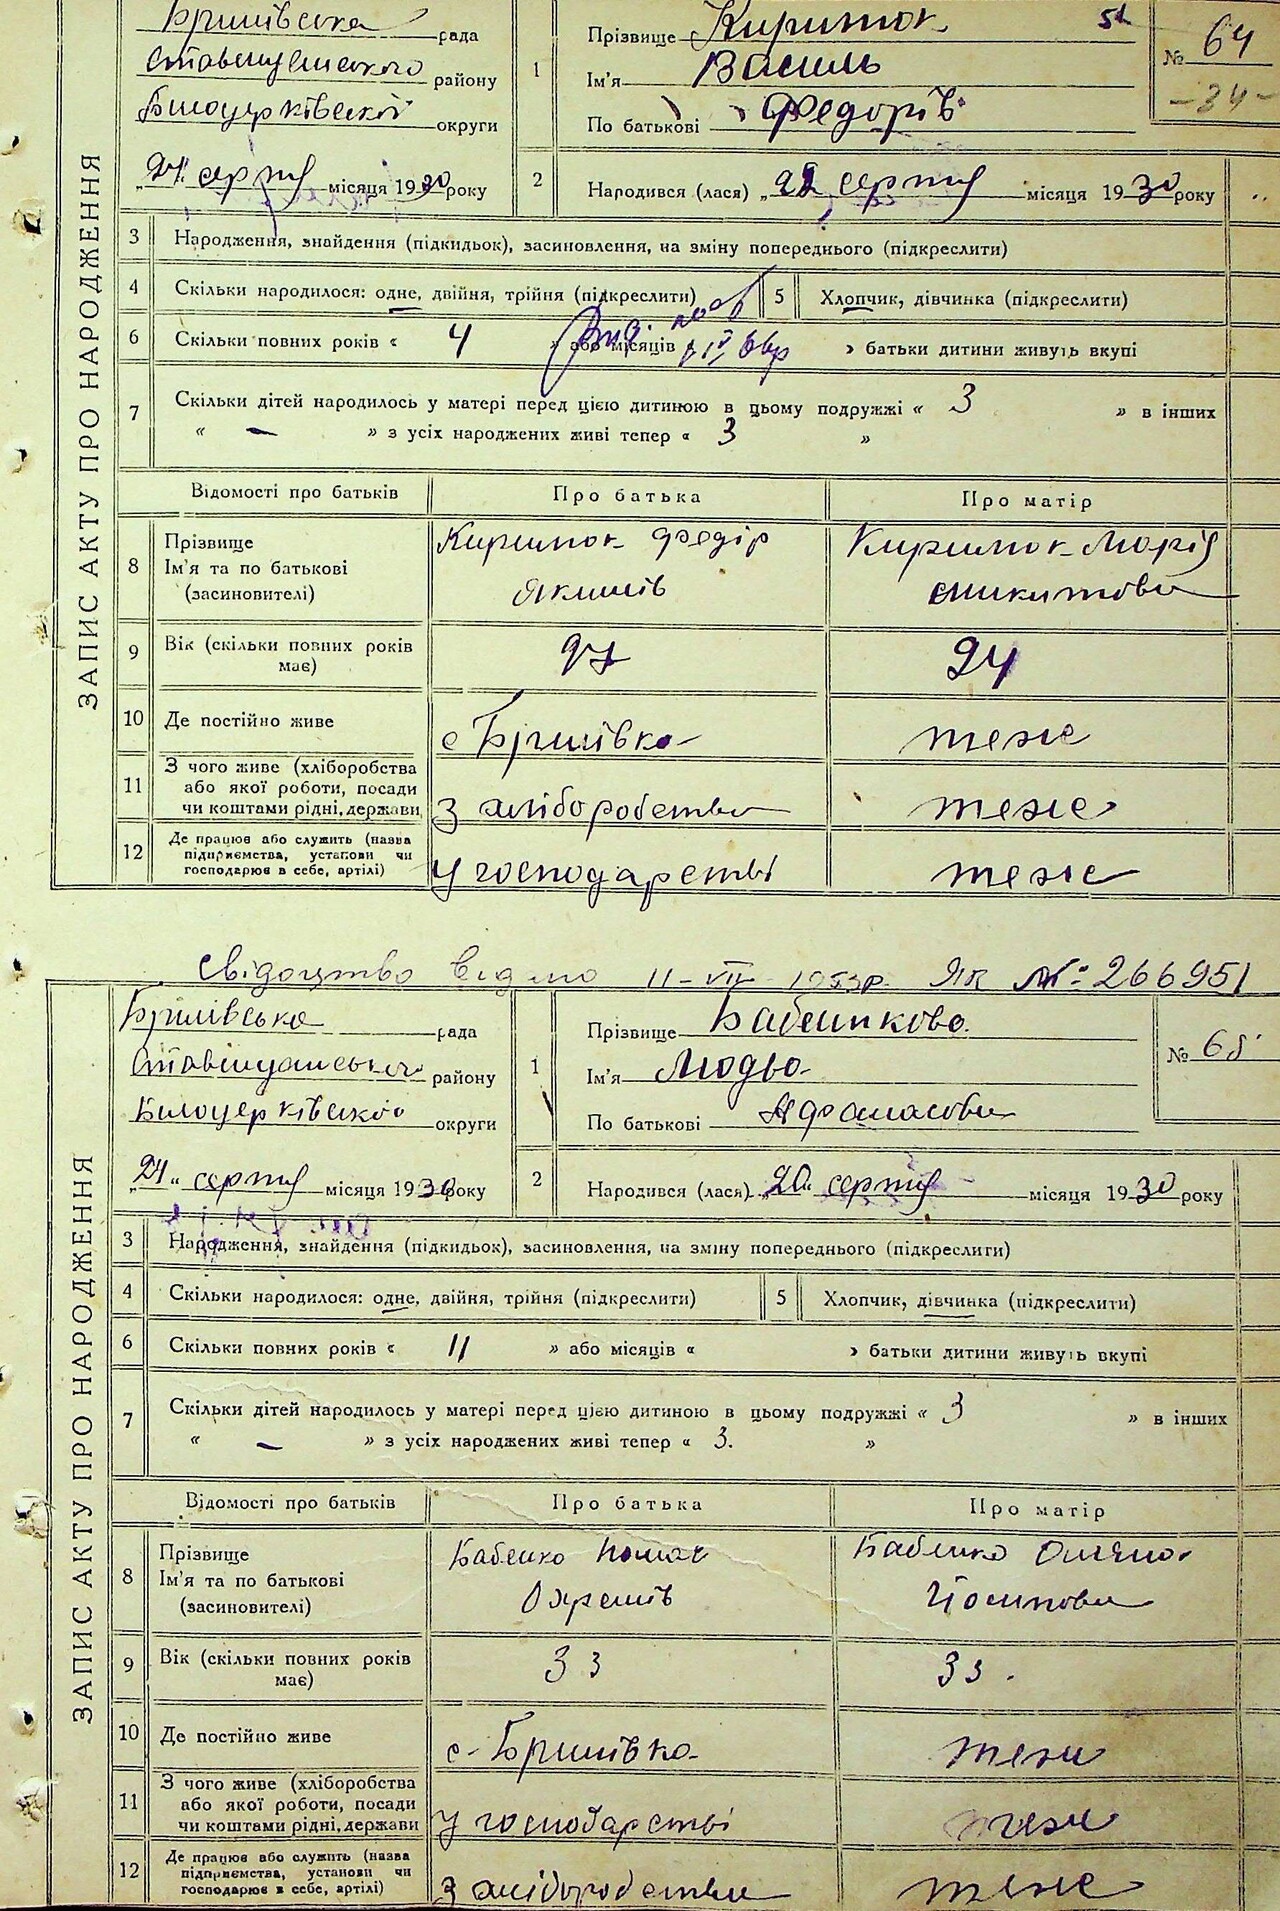 Бришівська рада
Ставищенського району
Білоцерківської округи
„24“ серпня місяця 1930 року
ЗАПИС АКТУ ПРО НАРОДЖЕННЯ
1 Прізвище
Ім'я Василь
По батькові Федорів
№ 64
-34-
2 Народився (лася) „22 серпня місяця 1930 року
3 Народження, знайдення (підкидьок), засиновлення, на зміну попереднього (підкреслити)
4 Скільки народилося: одне, двійня, трійня (підкреслити)
5 Хлопчик, дівчинка (підкреслити)
6 Скільки повних років « 4 » або місяців « » батьки дитини живуть вкупі
7 Скільки дітей народилось у матері перед цією дитиною в цьому подружжі « 3 » в інших
« – » з усіх народжених живі тепер « 3 »
Відомості про батьків Про батька Про матір
8 Прізвище
Ім'я та по батькові
(засновителі)
Федір
Якимів
Марія
Микитовна
9 Вік (скільки повних років
має) 27 24
10 Де постійно живе с теже
11 З чого живе (хліборобства
або якої роботи, посади
чи коштами рідні, держави
З хліборобства теже
12 Де працює або служить (назва
підприємства, установи чи
господарює в себе, артілі)
У господарстві теже
Свідоцтво видано 11-VII-1953р. ЯК №: 266951
рада
Ставищанського району
Білоцерківської округи
„24“ серпня місяця 1930 року
ЗАПИС АКТУ ПРО НАРОДЖЕННЯ
1 Прізвище Бабенкова
Ім'я Людьа
По батькові Афанасовна
№ 65
2 Народився (лася) „20“ серпня місяця 1930 року
3 Народження, знайдення (підкидьок), засиновлення, на зміну попереднього (підкреслити)
4 Скільки народилося: одне, двійня, трійня (підкреслити)
5 Хлопчик, дівчинка (підкреслити)
6 Скільки повних років « 11 » або місяців « » батьки дитини живуть вкупі
7 Скільки дітей народилось у матері перед цією дитиною в цьому подружжі « 3 » в інших
« – » з усіх народжених живі тепер « 3. »
Відомості про батьків Про батька Про матір
8 Прізвище
Ім'я та по батькові
(засиновителі)
Бабенко
Охремів
Бабенко
Йосиповна
9 Вік (скільки повних років
має) 33 33.
10 Де постійно живе с. теже
11 З чого живе (хліборобства
або якої роботи, посади
чи коштами рідні, держави
У господарстві теже
12 Де працює або служить (назва
підприємства, установи чи
господарює в себе, артілі)
З хліборобства теже